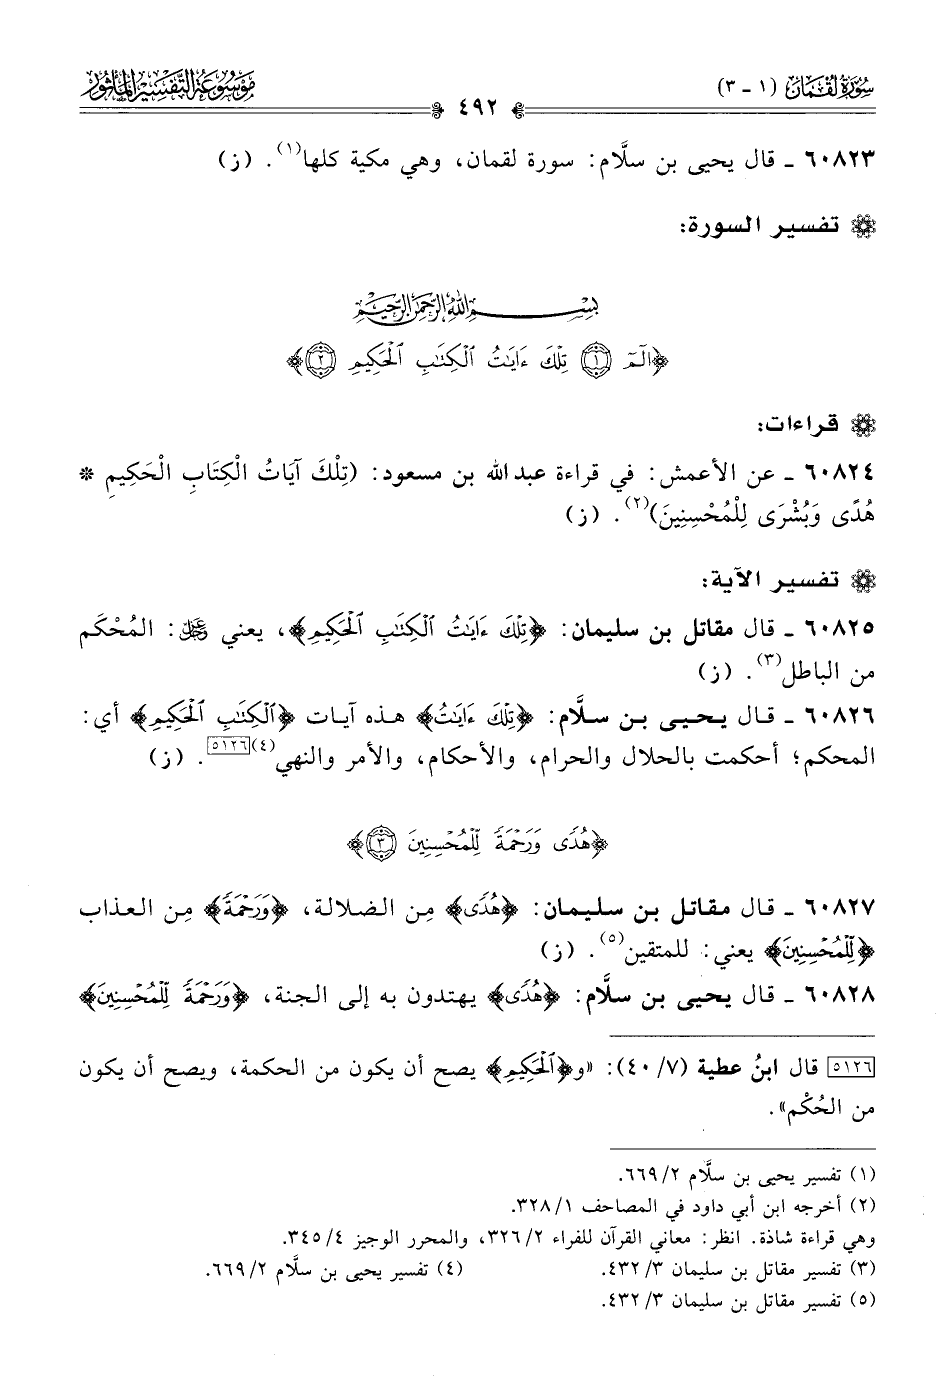 سُورَةُ لُقْمَانَ (١ - ٣)
٤٩٢
مَوْسُوعَةُ التَّفْسِيرِ الْمَأْثُورِ
٦٠٨٢٣ ـ قال يحيى بن سلَّام: سورة لقمان، وهي مكية كلها(١). (ز)
تفسير السورة:
بِسْمِ اللَّهِ الرَّحْمَٰنِ الرَّحِيمِ
﴿الٓمٓ ١ تِلْكَ ءَايَٰتُ ٱلْكِتَٰبِ ٱلْحَكِيمِ ٢﴾
قراءات:
٦٠٨٢٤ ـ عن الأعمش: في قراءة عبد الله بن مسعود: (تِلْكَ آيَاتُ الْكِتَابِ الْحَكِيمِ *
هُدًى وَبُشْرَى لِلْمُحْسِنِينَ)(٢). (ز)
تفسير الآية:
٦٠٨٢٥ ـ قال مقاتل بن سليمان: ﴿تِلْكَ ءَايَٰتُ ٱلْكِتَٰبِ ٱلْحَكِيمِ﴾، يعني عَزَّ وَجَلَّ: المُحْكَم
من الباطل(٣). (ز)
٦٠٨٢٦ ـ قال يحيى بن سلَّام: ﴿تِلْكَ ءَايَٰتُ﴾ هذه آيات ﴿ٱلْكِتَٰبِ ٱلْحَكِيمِ﴾ أي:
المحكم؛ أحكمت بالحلال والحرام، والأحكام، والأمر والنهي(٤)[٥١٢٦]. (ز)
﴿هُدًى وَرَحْمَةً لِّلْمُحْسِنِينَ ٣﴾
٦٠٨٢٧ ـ قال مقاتل بن سليمان: ﴿هُدًى﴾ مِن الضلالة، ﴿وَرَحْمَةً﴾ مِن العذاب
﴿لِّلْمُحْسِنِينَ﴾ يعني: للمتقين(٥). (ز)
٦٠٨٢٨ ـ قال يحيى بن سلَّام: ﴿هُدًى﴾ يهتدون به إلى الجنة، ﴿وَرَحْمَةً لِّلْمُحْسِنِينَ﴾
[٥١٢٦] قال ابنُ عطية (٧/ ٤٠): «و﴿ٱلْحَكِيمِ﴾ يصح أن يكون من الحكمة، ويصح أن يكون
من الحُكْم».
(١) تفسير يحيى بن سلَّام ٢/ ٦٦٩.
(٢) أخرجه ابن أبي داود في المصاحف ١/ ٣٢٨.
وهي قراءة شاذة. انظر: معاني القرآن للفراء ٢/ ٣٢٦، والمحرر الوجيز ٤/ ٣٤٥.
(٣) تفسير مقاتل بن سليمان ٣/ ٤٣٢.
(٤) تفسير يحيى بن سلَّام ٢/ ٦٦٩.
(٥) تفسير مقاتل بن سليمان ٣/ ٤٣٢.